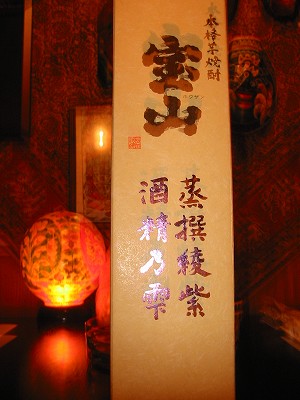 本格芋焼酎
宝山
蒸撰綾紫
酒精乃雫